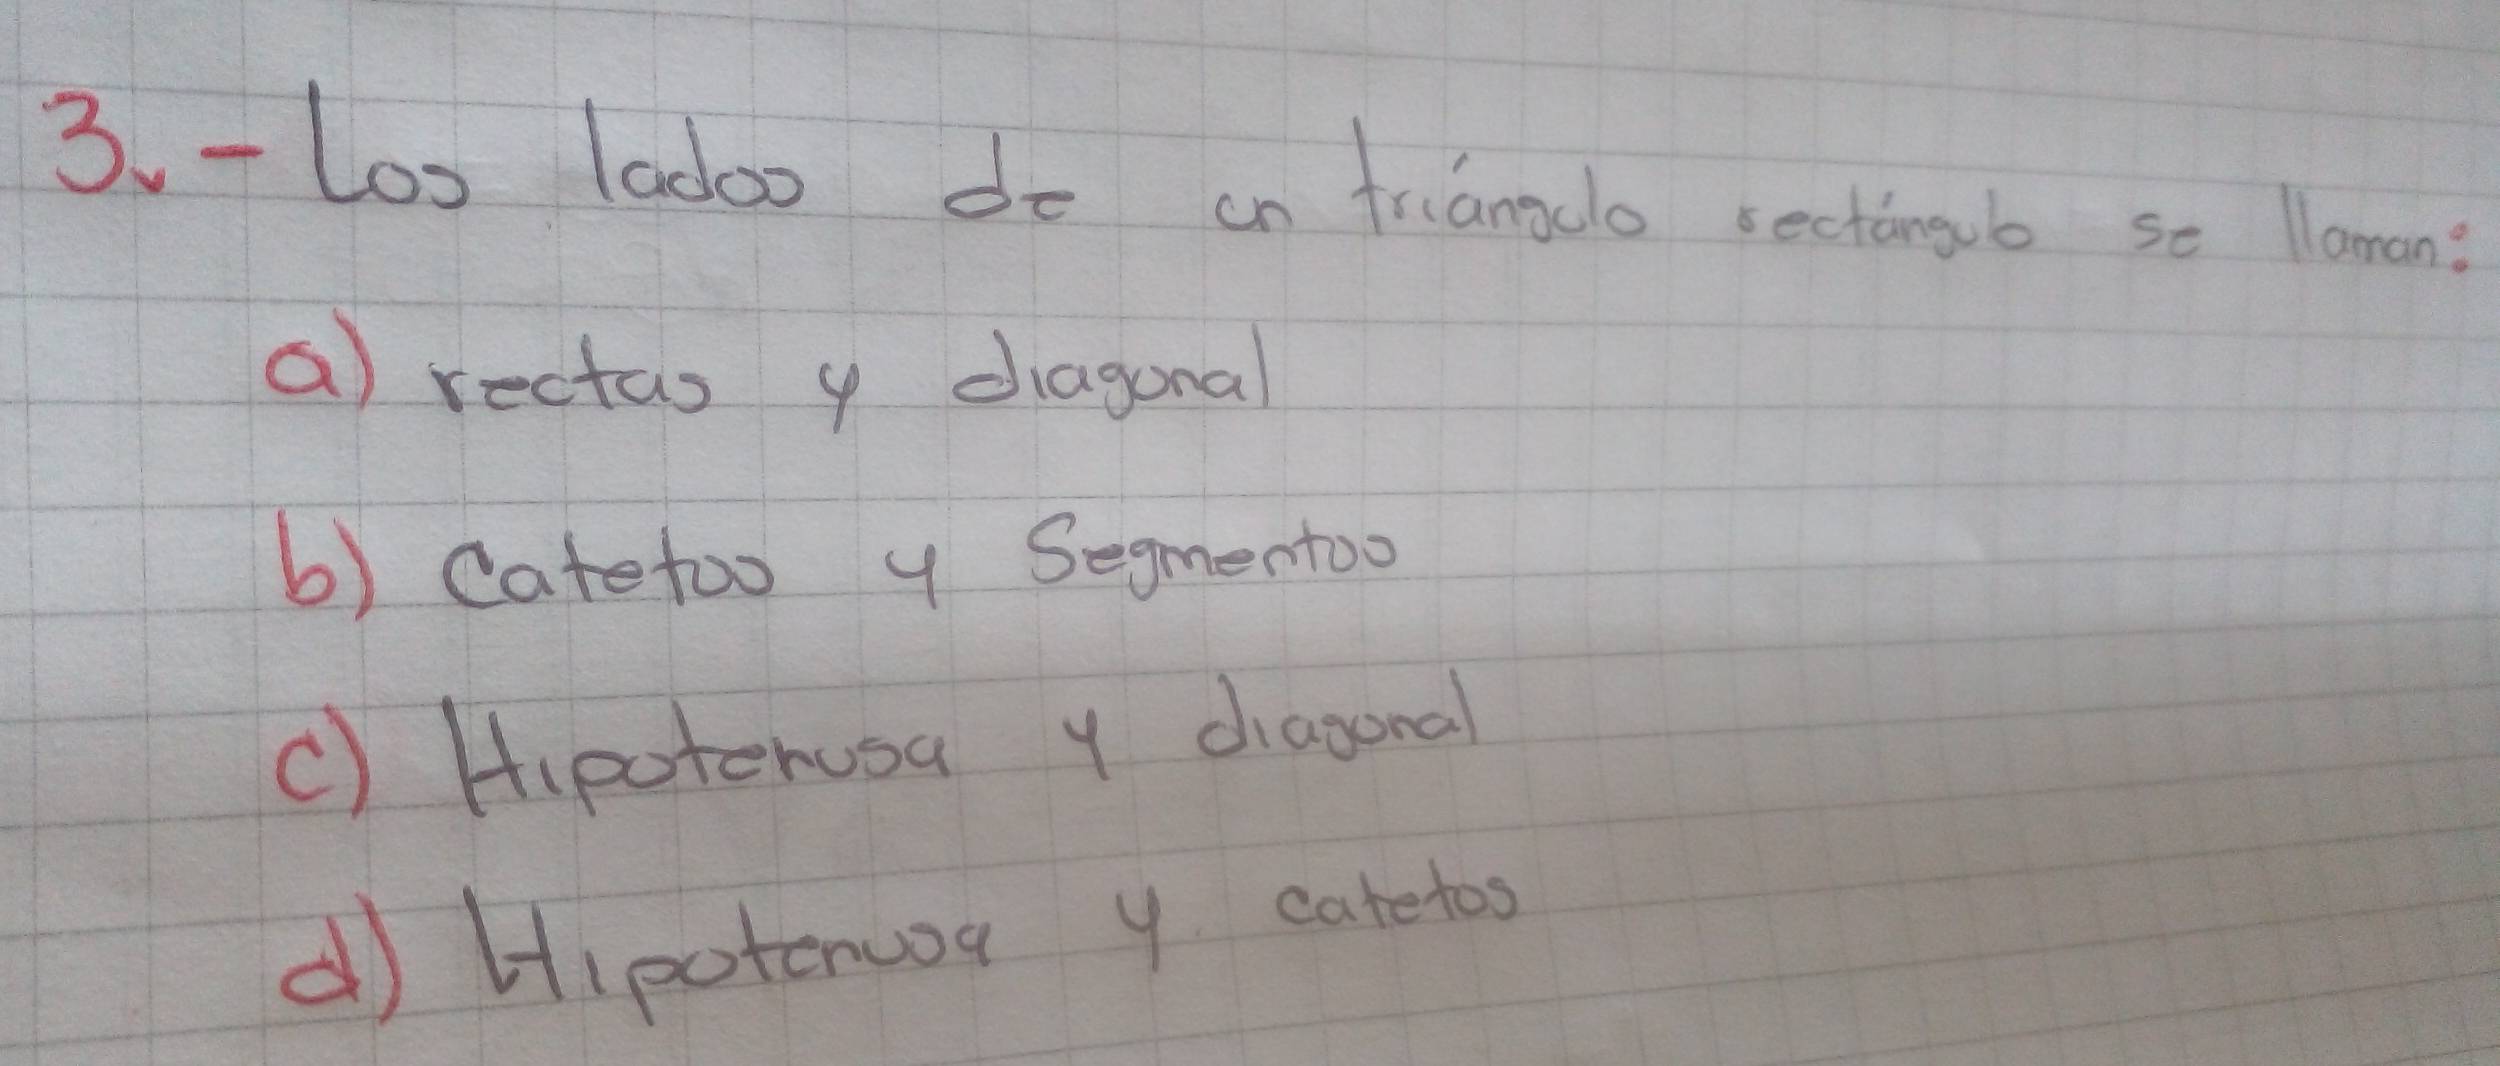 3.- Los lados de un triángulo rectángulo se llaman:
a) rectas y diagonal
b) Catetos y Segmentos
c) Hipotenusa y diagonal
d) Hipotenusa y catetos